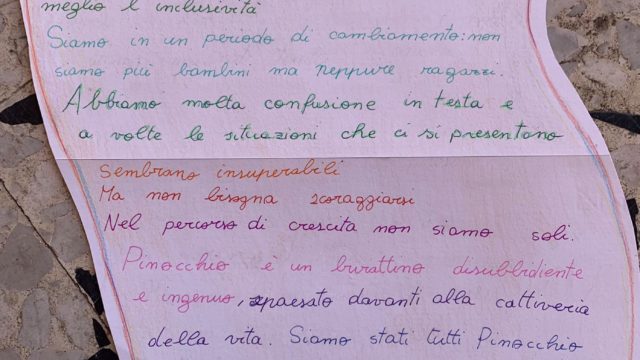 meglio l'inclusività
Siamo in un periodo di cambiamento: non
siamo più bambini ma neppure ragazzi.
Abbiamo molta confusione in testa e
a volte le situazioni che ci si presentano
sembrano insuperabili
Ma non bisogna scoraggiarsi
Nel percorso di crescita non siamo soli.
Pinocchio è un burattino disubbidiente
e ingenuo, spaesato davanti alla cattiveria
della vita. Siamo stati tutti Pinocchio